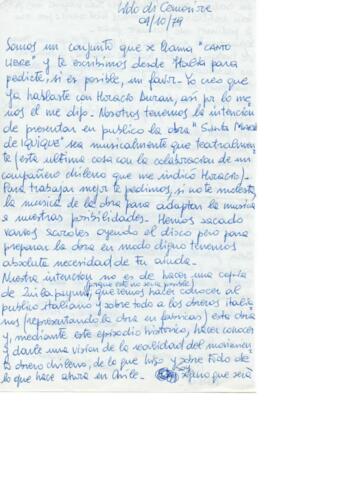 Lido di Camaiore
04/10/79
Somos un conjunto que se llama "CANTO
LIBRE" y te escribimos desde Italia para
pedirte, si es posible, un favor. Yo creo que
ya hablaste con Horacio Duran, así por lo me
nos el me dijo. Nosotros tenemos la intencion
de presentar en publico la obra "Santa Maria
de IQUIQUE" sea musicalmente que teatralmen
te (esta ultima cosa con la colaboracion de un
compañero chileno que me indicó Horacio).
Para trabajar mejor te pedimos, si no te molesta,
la musica de la obra para adaptar la musica
a nuestras posibilidades. Hemos sacado
varios oyendo el disco pero para
preparar la obra en modo digno tenemos
absoluta necesidad de tu ayuda.
Nuestra intencion no es de hacer una copia
(porque esto no seria posible)
de Quilapayun, queremos hacer conocer al
publico Italiano y sobre todo a los obreros italia
nos (representando la obra en fabricas) esta obra
y, mediante este episodio historico, hacer conocer
y darle una vision de la realidad del movimien
to obrero chileno, de lo que hizo y sobre todo de
lo que hace ahora en Chile. que será